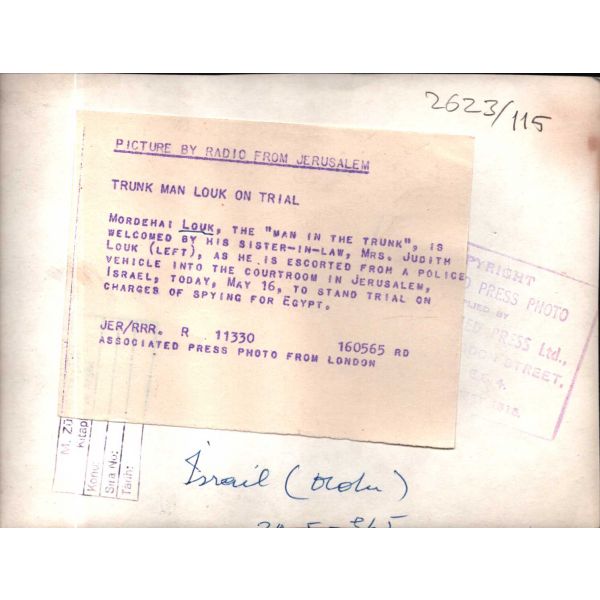 2623/115
PICTURE BY RADIO FROM JERUSALEM
TRUNK MAN LOUK ON TRIAL
MORDEHAI LOUK, THE "MAN IN THE TRUNK", IS
WELCOMED BY HIS SISTER-IN-LAW, MRS. JUDITH
LOUK (LEFT), AS HE IS ESCORTED FROM A POLICE
VEHICLE INTO THE COURTROOM IN JERUSALEM,
ISRAEL, TODAY, MAY 16, TO STAND TRIAL ON
CHARGES OF SPYING FOR EGYPT.
JER/RRR. R 11330 160565 RD
ASSOCIATED PRESS PHOTO FROM LONDON
PYRIGHT
D PRESS PHOTO
PLIED BY
ED PRESS Ltd.,
STREET,
E.C. 4.
M. Zü
Kitap
Konu:
Sıra No:
Tarih:
İsrail (Ordu)